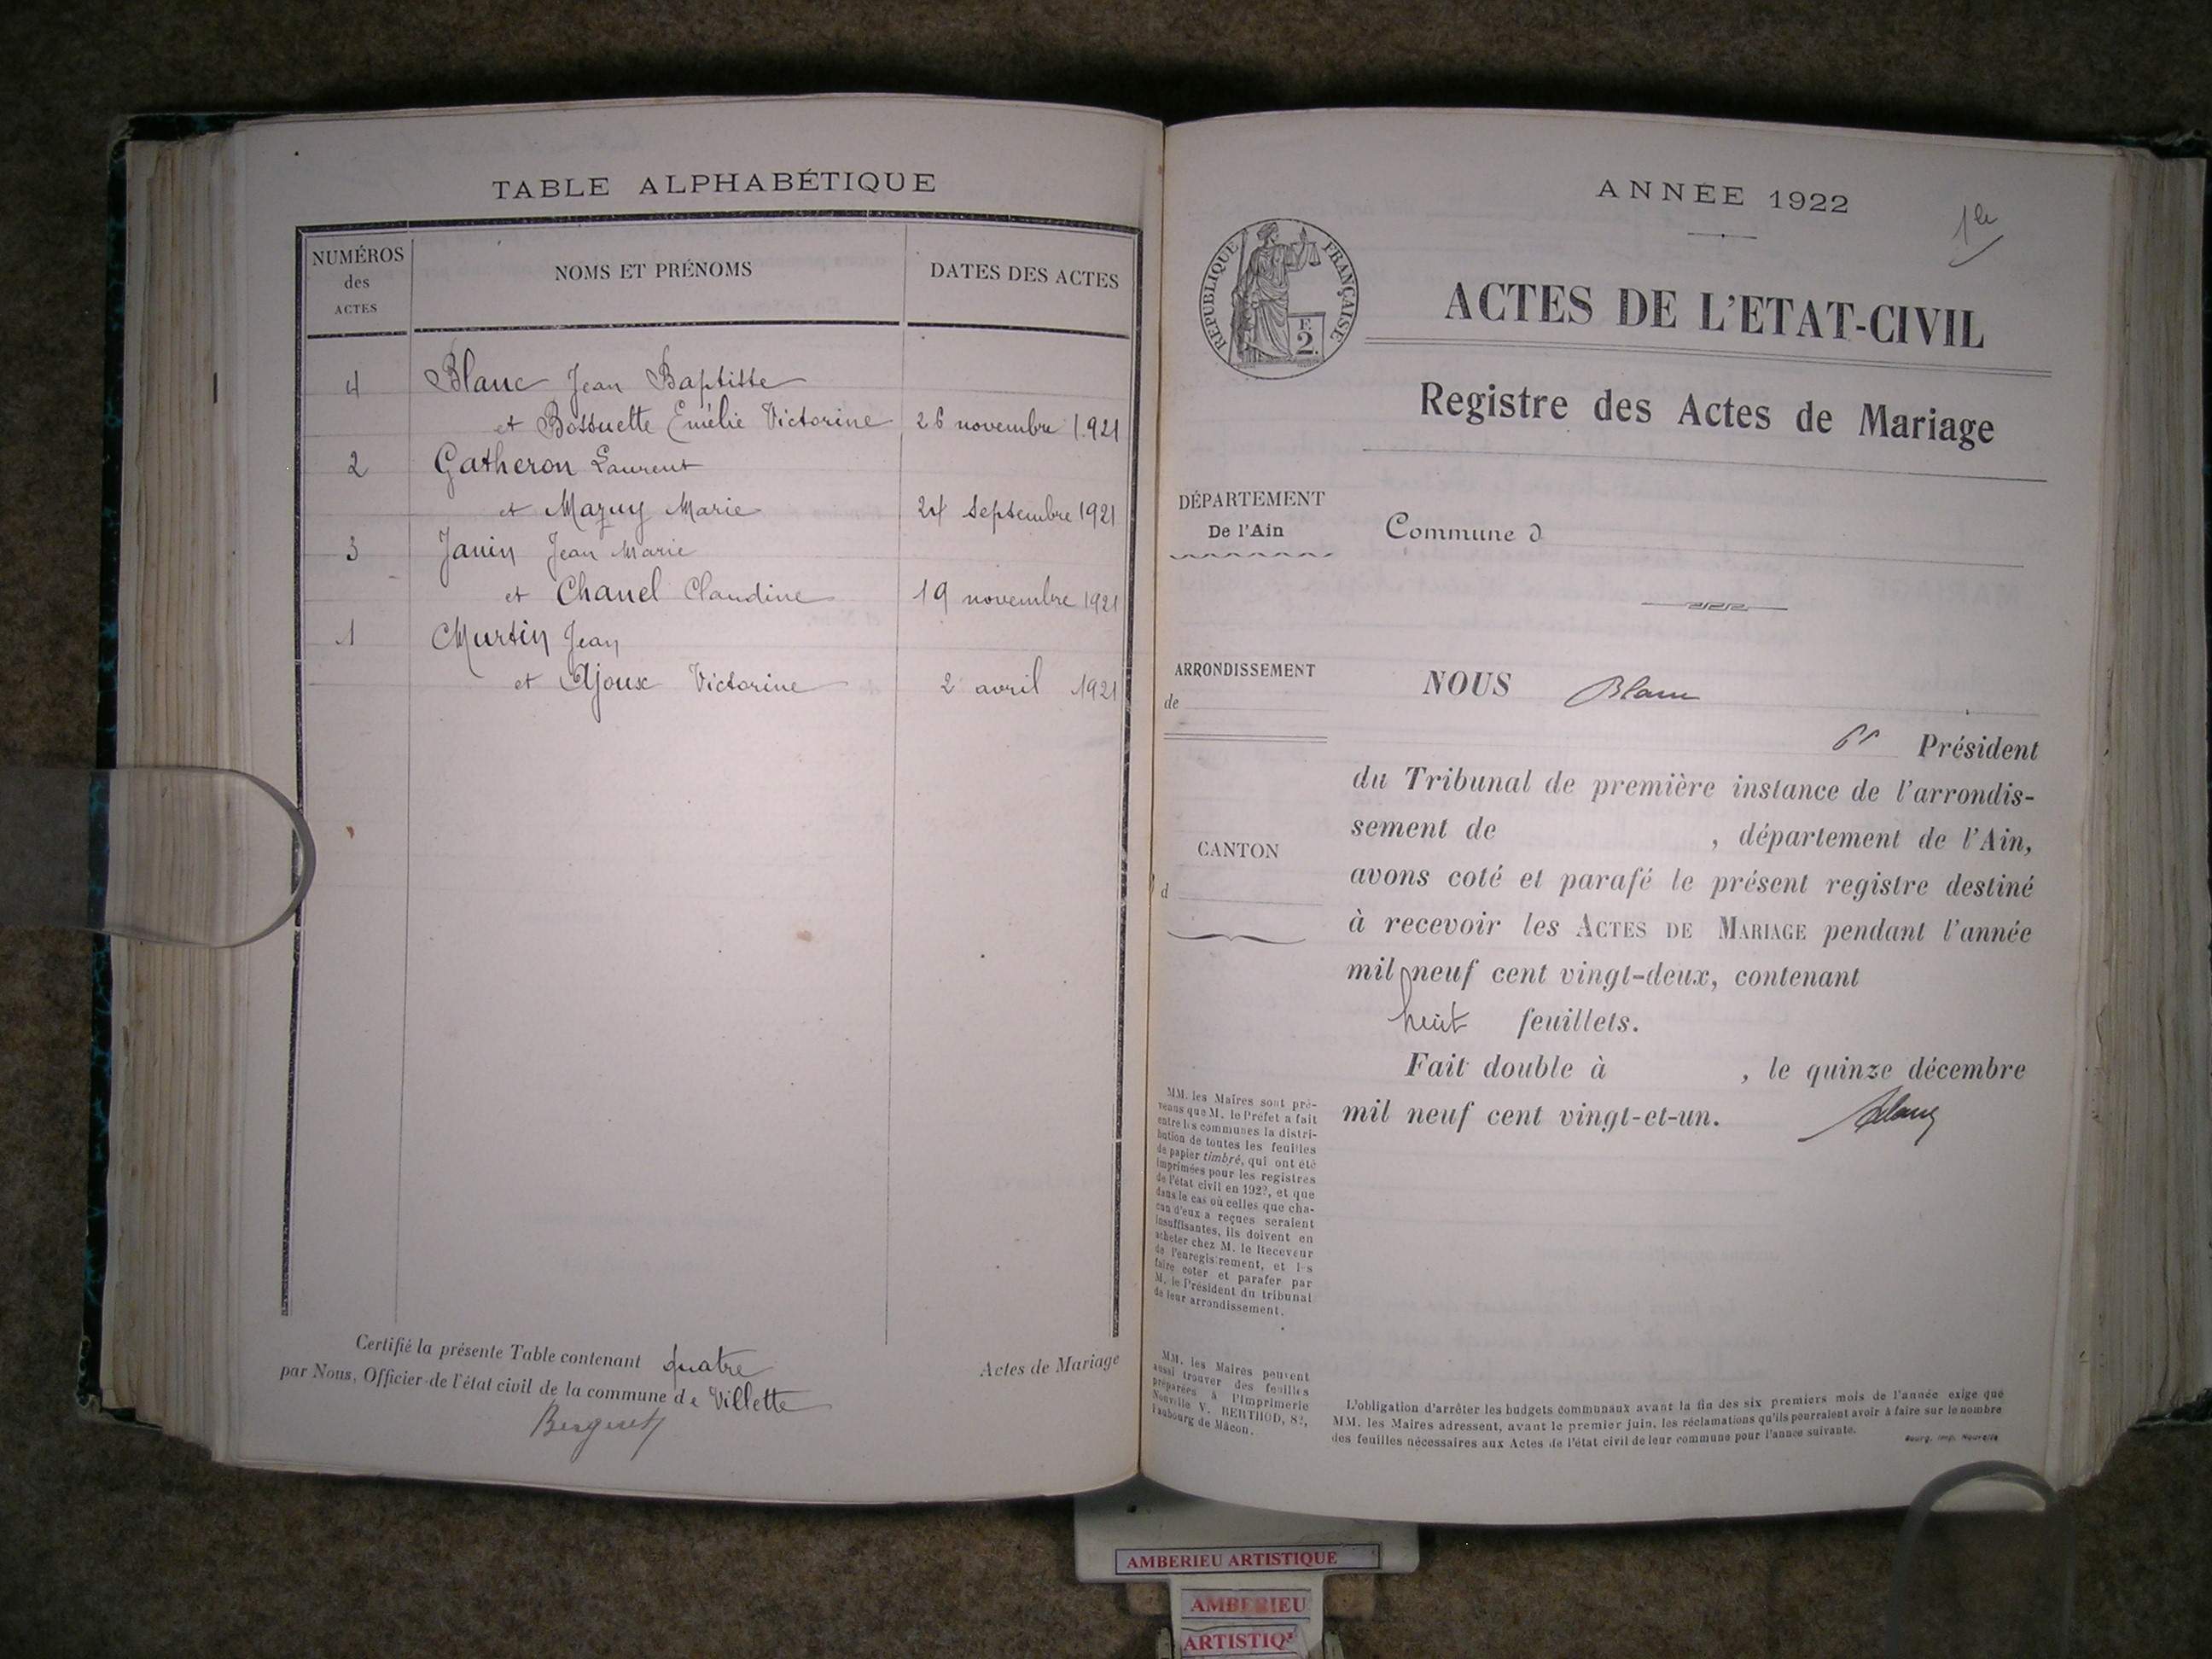 TABLE ALPHABÉTIQUE
NUMÉROS des ACTES
NOMS ET PRÉNOMS
DATES DES ACTES
4 Blanc Jean Baptiste
et Bossuette Emélie Victorine 26 novembre 1921
2 Gatheron Laurent
et Mazuy Marie 24 septembre 1921
3 Janin Jean Marie
et Chanel Claudine 19 novembre 1921
1 Murtin Jean
et Ajoux Victorine 2 avril 1921
Certifié la présente Table contenant quatre Actes de Mariage
par Nous, Officier de l'état civil de la commune de Villette
ANNÉE 1922
1er
RÉPUBLIQUE FRANÇAISE
F.
2.
ACTES DE L'ETAT-CIVIL
Registre des Actes de Mariage
DÉPARTEMENT
De l'Ain
Commune d
ARRONDISSEMENT
de
CANTON
d
NOUS Blanc
Président
du Tribunal de première instance de l'arrondis-
sement de , département de l'Ain,
avons coté et parafé le présent registre destiné
à recevoir les ACTES DE MARIAGE pendant l'année
mil neuf cent vingt-deux, contenant
huit feuillets.
Fait double à , le quinze décembre
mil neuf cent vingt-et-un.
Blanc
MM. les Maires sont pré-
venus que M. le Préfet a fait
entre les communes la distri-
bution de toutes les feuilles
de papier timbré, qui ont été
imprimées pour les registres
de l'état civil en 1922, et que
dans le cas où celles que cha-
cun d'eux a reçues seraient
insuffisantes, ils doivent en
acheter chez M. le Receveur
de l'enregistrement, et les
faire coter et parafer par
M. le Président du tribunal
de leur arrondissement.
MM. les Maires peuvent
aussi trouver des feuilles
préparées à l'Imprimerie
Nouvelle V. BERTHOD, 82,
Faubourg de Mâcon.
L'obligation d'arrêter les budgets communaux avant la fin des six premiers mois de l'année exige que
MM. les Maires adressent, avant le premier juin, les réclamations qu'ils pourraient avoir à faire sur le nombre
des feuilles nécessaires aux Actes de l'état civil de leur commune pour l'année suivante.
Bourg, Imp. Nouvelle
AMBERIEU ARTISTIQUE
AMBERIEU
ARTISTIQ